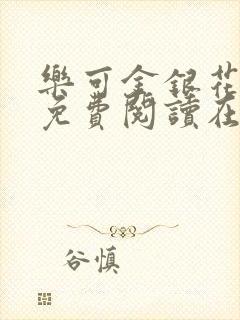 樂可金銀花
免費閱讀在
谷慎